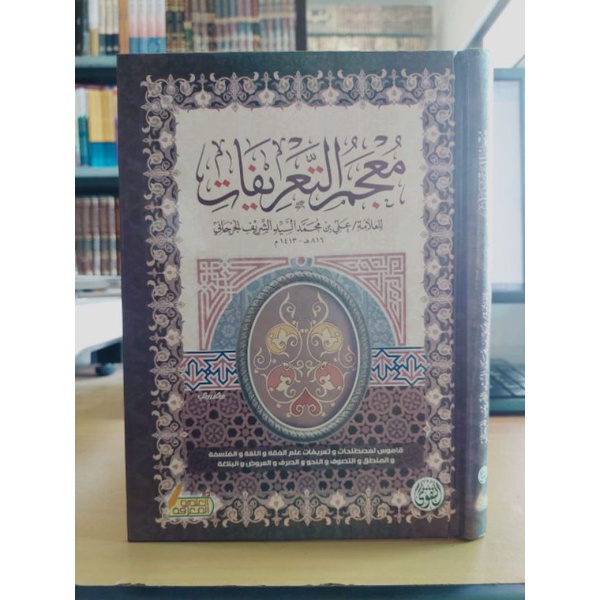 معجم التعريفات
للعلامة / علي بن محمد السيد الشريف الجرجاني
٨١٦ هـ - ١٤١٣ م
قاموس لمصطلحات و تعريفات علم الفقه و اللغة و الفلسفة
و المنطق و التصوف و النحو و الصرف و العروض و البلاغة